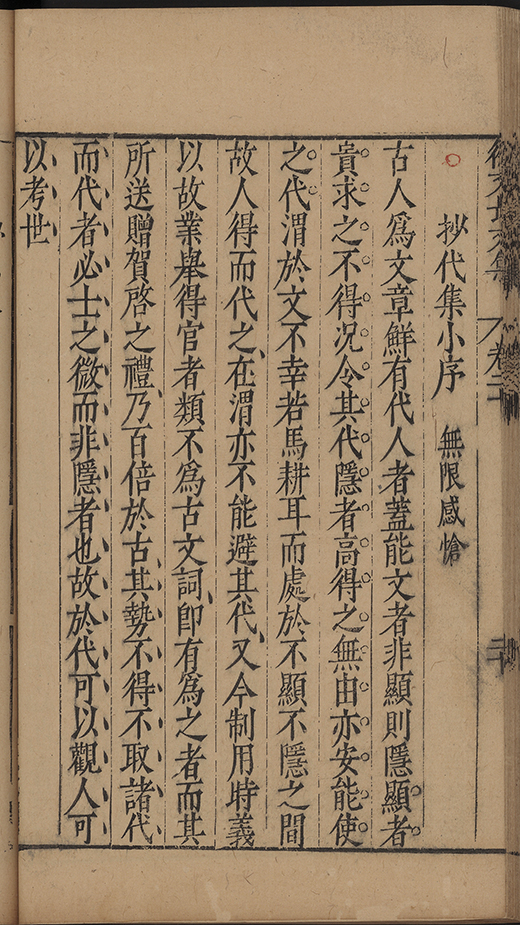 徐文長文集 卷二 二
抄代集小序 無限感愴
古人爲文章鮮有代人者蓋能文者非顯則隱顯者
貴求之不得况令其代隱者高得之無由亦安能使
之代渭於文不幸若馬耕耳而處於不顯不隱之間
故人得而代之在渭亦不能避其代又今制用時義
以故業舉得官者類不爲古文詞即有爲之者而其
所送贈賀啓之禮乃百倍於古其勢不得不取諸代
而代者必士之微而非隱者也故於代可以觀人可
以考世